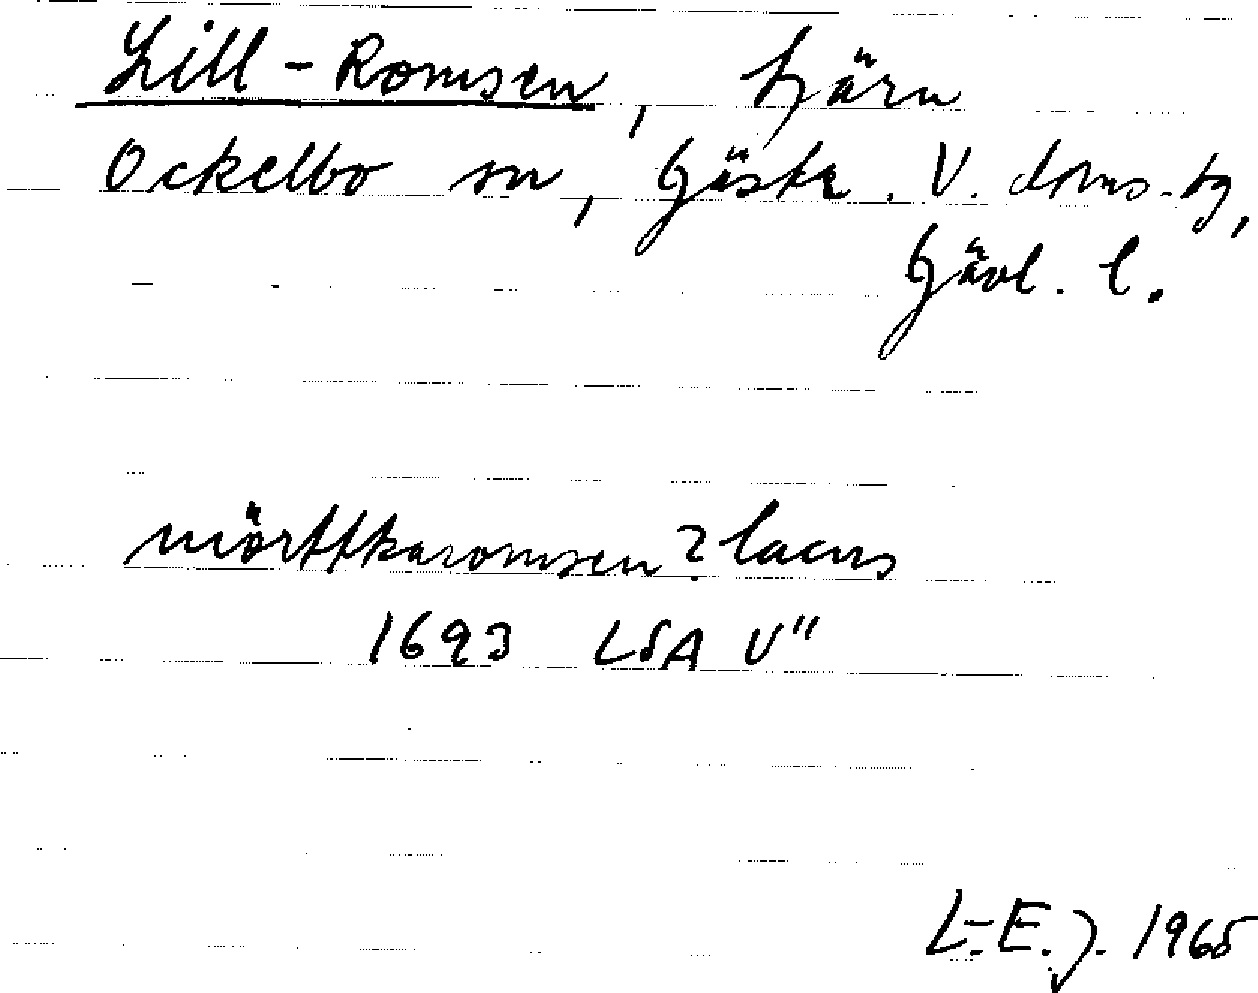 Lill-Romsen, tjärn
Ockelbo sn, Gästr. V. doms-tg,
Gävl. l.
mörttkaromsen? lacus
1693 LSA V"
L.-E. J. 1965